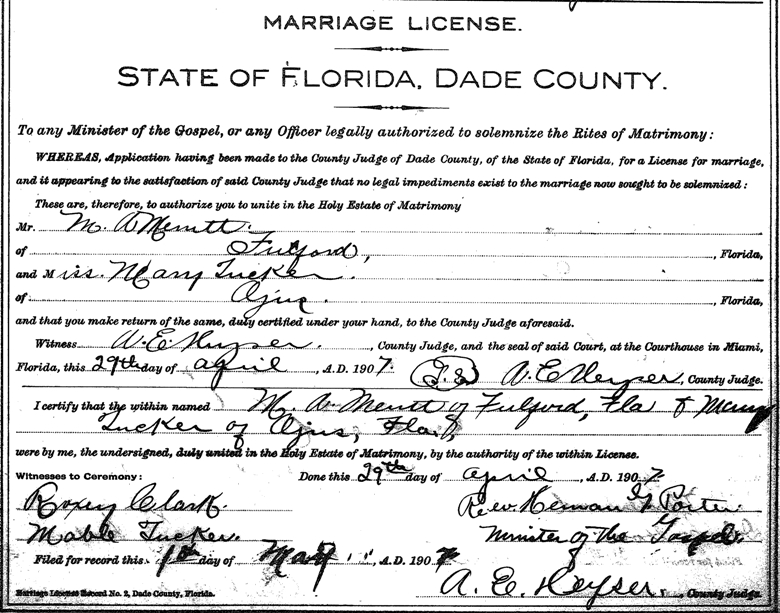 MARRIAGE LICENSE.
STATE OF FLORIDA, DADE COUNTY.
To any Minister of the Gospel, or any Officer legally authorized to solemnize the Rites of Matrimony:
WHEREAS, Application having been made to the County Judge of Dade County, of the State of Florida, for a License for marriage,
and it appearing to the satisfaction of said County Judge that no legal impediments exist to the marriage now sought to be solemnized:
These are, therefore, to authorize you to unite in the Holy Estate of Matrimony
Mr. M. A Merritt.
of Fulford, , Florida,
and Miss. Mary Tucker
of Ojus. , Florida,
and that you make return of the same, duly certified under your hand, to the County Judge aforesaid.
Witness A. E. Heyser. , County Judge, and the seal of said Court, at the Courthouse in Miami,
Florida, this 29th day of April , A.D. 1907. A. E Heyser, County Judge.
I certify that the within named M. A Merritt of Fulford, Fla & Mary
Tucker of Ojus, Fla,
were by me, the undersigned, duly united in the Holy Estate of Matrimony, by the authority of the within License.
Witnesses to Ceremony: Done this 29th day of April , A.D. 1907
Roxey Clark. Rev. Herman Porter.
Mable Tucker. Minister of the Gospel.
Filed for record this 1st day of May , A.D. 1907
A. E. Heyser. County Judge.
Marriage License Record No. 2, Dade County, Florida.